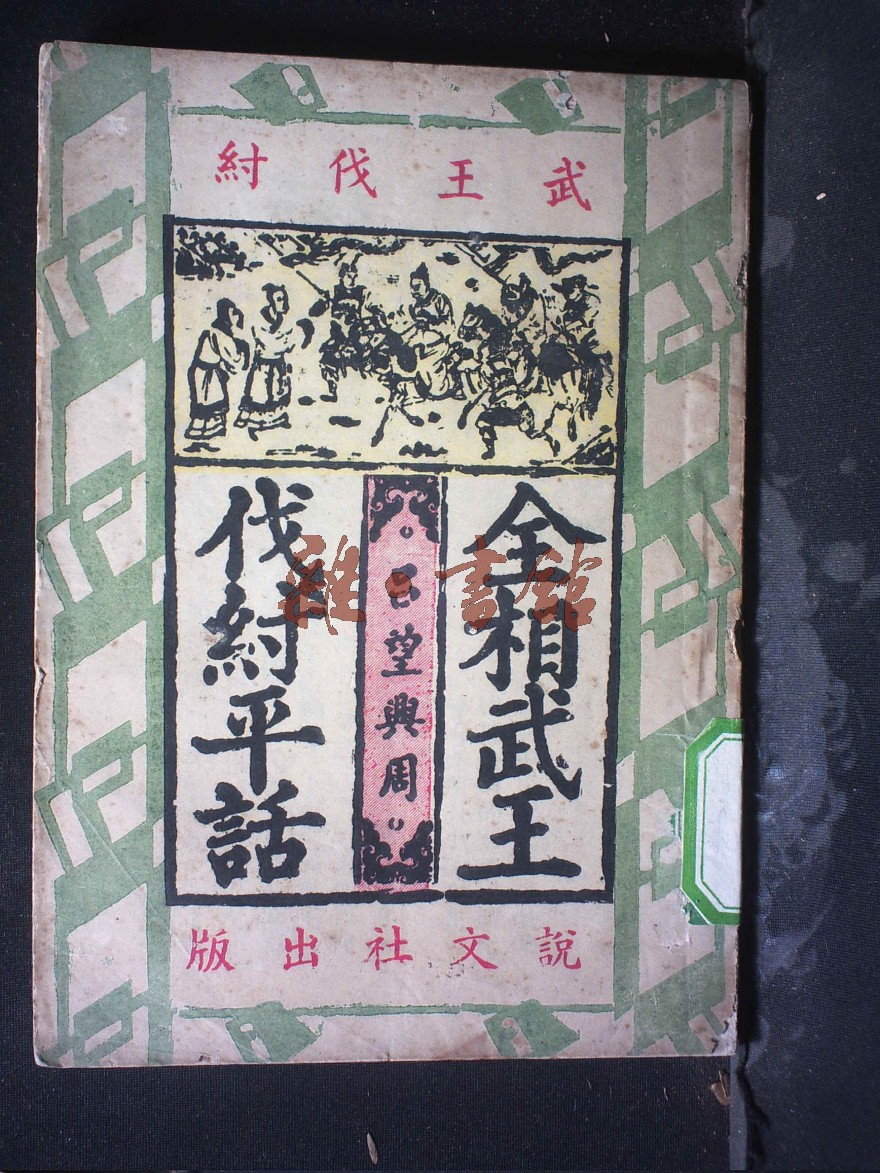 武王伐紂
全相武王
吕望興周
伐紂平話
說文社出版
雜·書館